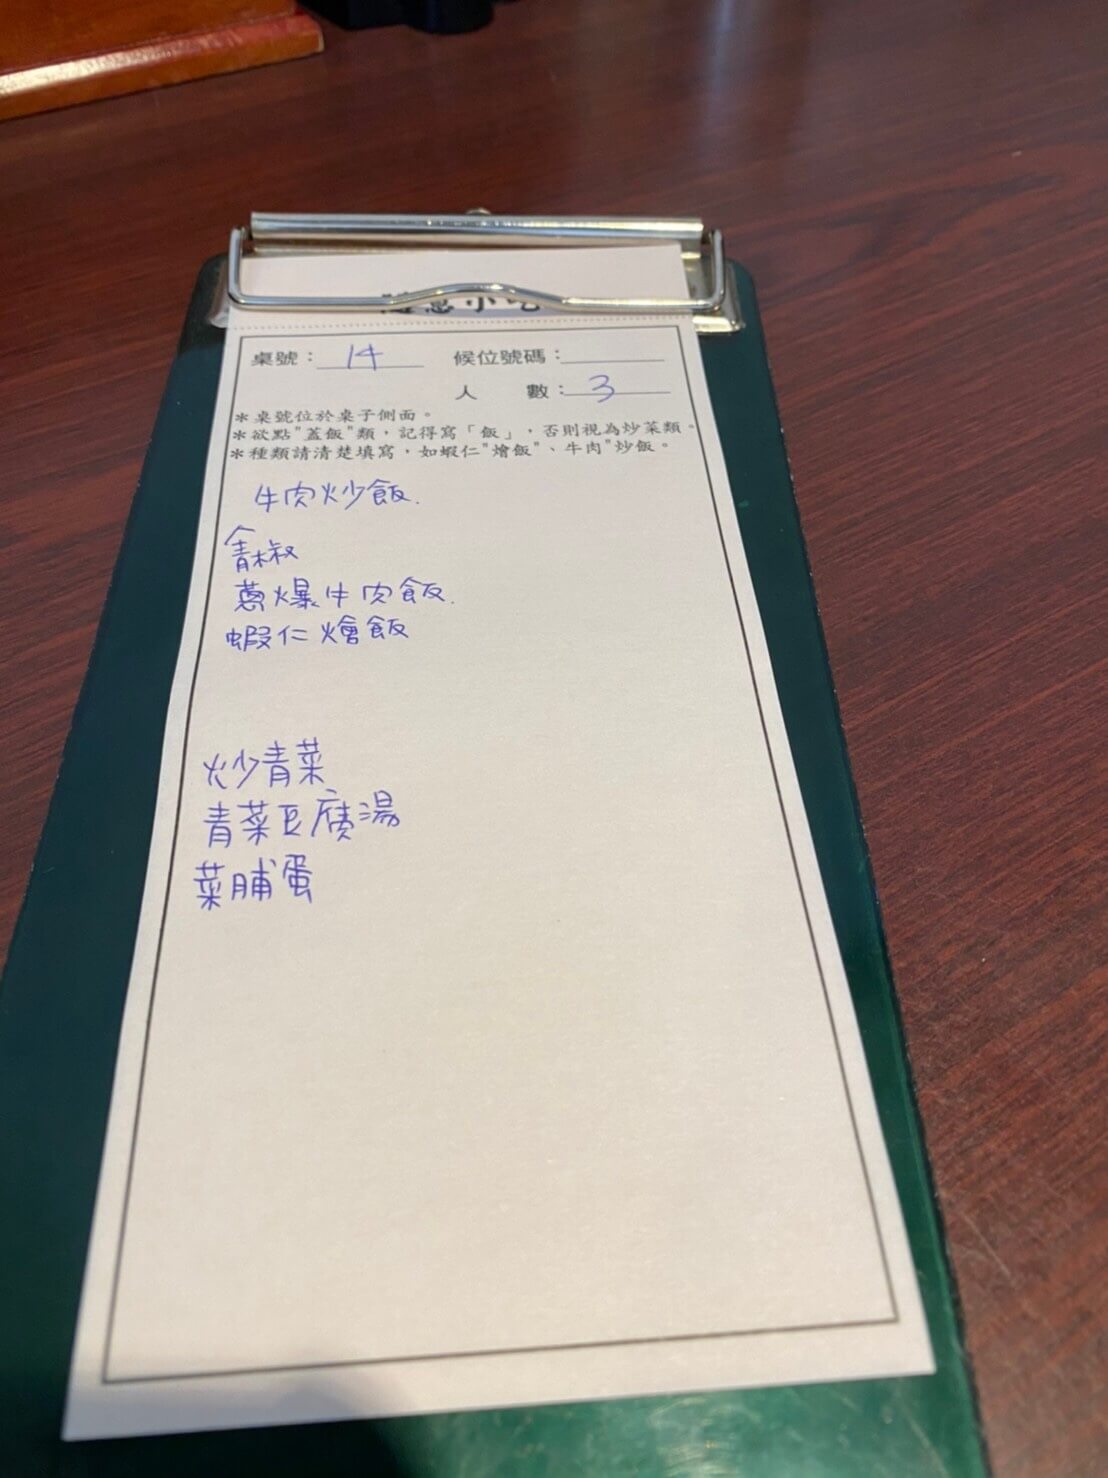 隨意小吃
桌號：14 候位號碼：
人 數：3
＊桌號位於桌子側面。
＊欲點"蓋飯"類，記得寫「飯」，否則視為炒菜類。
＊種類請清楚填寫，如蝦仁"燴飯"、牛肉"炒飯。
牛肉炒飯.
青椒
蔥爆牛肉飯.
蝦仁燴飯
炒青菜
青菜豆腐湯
菜脯蛋